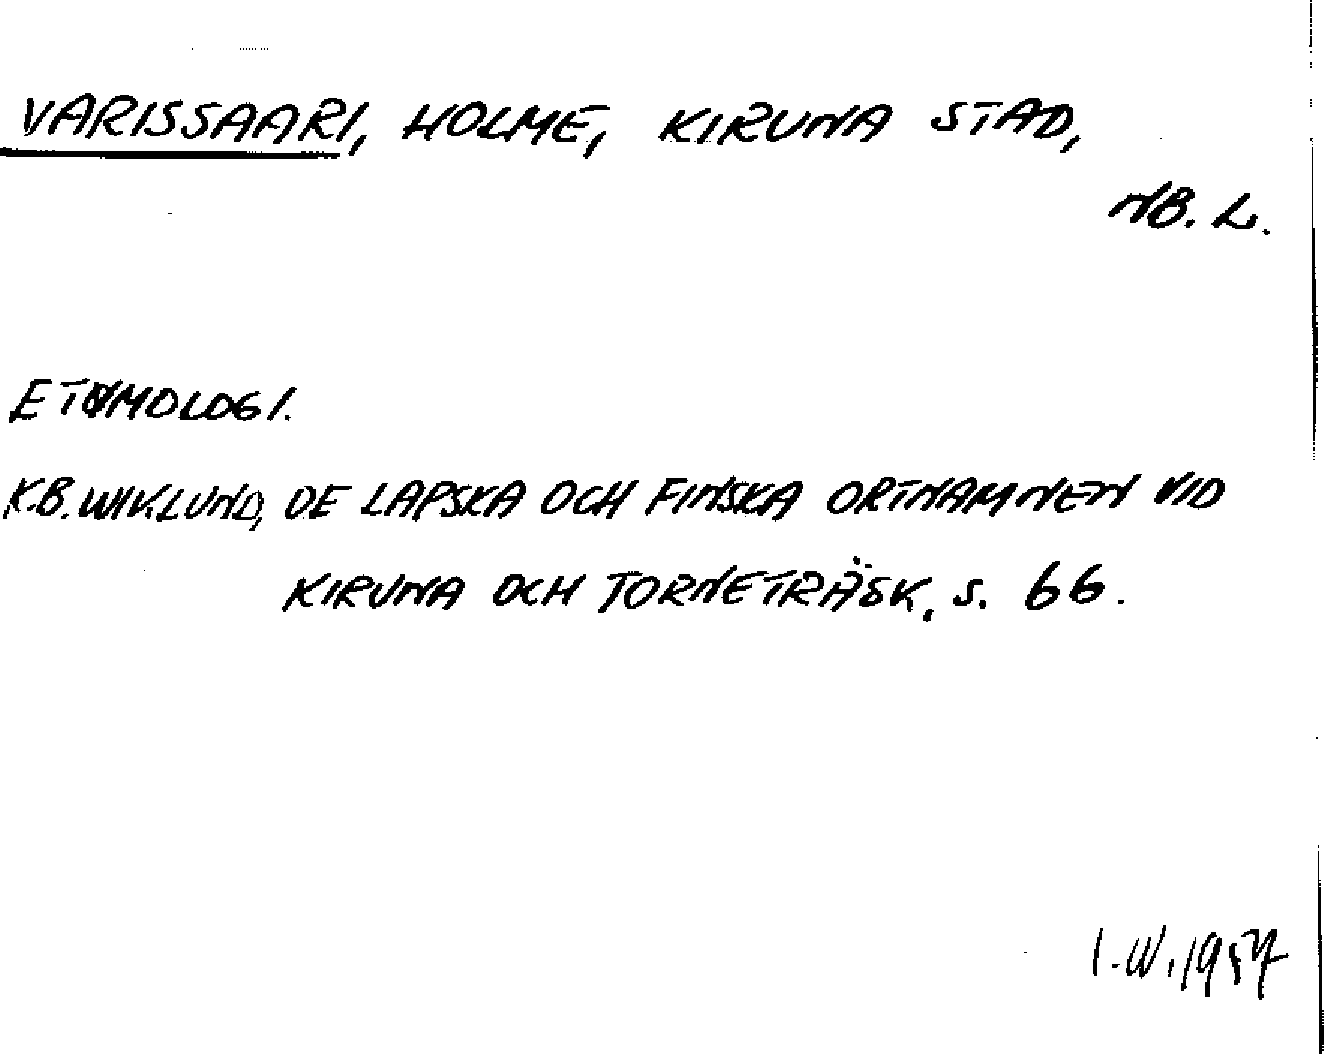 VARISSAARI, HOLME, KIRUNA STAD,
NB. L.
ETYMOLOGI.
K.B. WIKLUND, DE LAPSKA OCH FINSKA ORTNAMNEN VID
KIRUNA OCH TORNETRÄSK. S. 66.
I.W. 1957